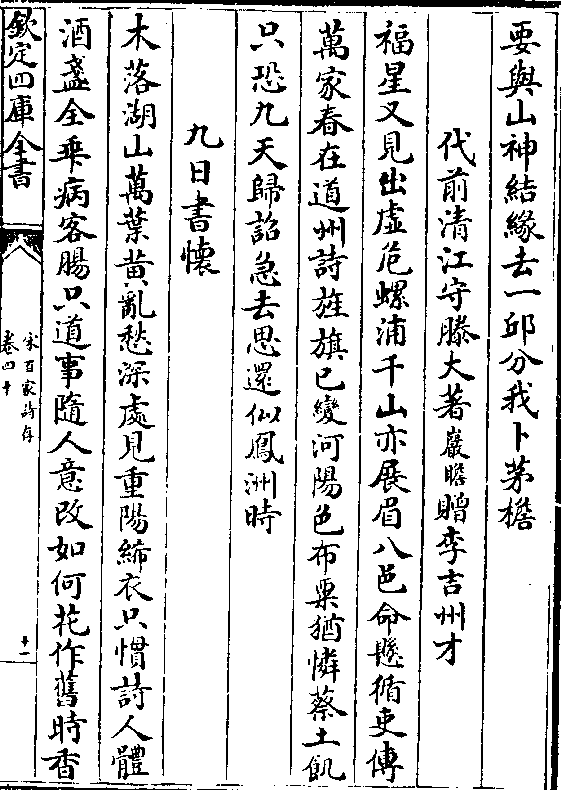 要與山神結緣去一邱分我卜茅檐
代前清江守滕大著巖瞻贈李吉州才
福星又見出虛危螺浦千山亦展眉八邑命懸循吏傳
萬家春在道州詩旌旗已變河陽色布粟猶憐蔡土飢
只恐九天歸詔急去思還似鳳洲時
九日書懷
木落湖山萬葉黄亂愁深處見重陽絺衣只慣詩人體
酒盞全乖病客腸只道事隨人意改如何花作舊時香
欽定四庫全書
宋百家詩存
卷四十
十一